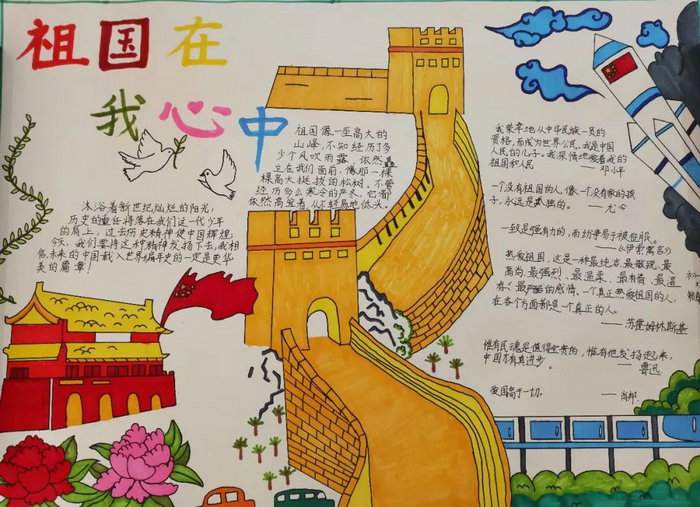 祖国在
我心中
祖国像一座高大的
山峰,不知经历了多
少个风吹雨露,依然矗
立在我们面前,像那一棵
棵高大挺拔的松树,不管
经历多么寒冷的严冬,它都
依然高耸着,从不轻易地低头。
沐浴着新世纪灿烂的阳光,
历史的重任将落在我们这一代少年
的肩上,过去历史精神使中国辉煌,
今天,我们要将这种精神发扬下去,我相
信,未来的中国载入世界编年史的一定是更华
美的篇章!
我荣幸地从中华民族一员的
资格,而成为世界公民。我是中国
人民的儿子。我深情地爱着我的
祖国和人民 —— 邓小平
一个没有祖国的人,像一个没有家的孩
子,永远是孤独的。 —— 尤今
一致是强有力的,而纷争易于被征服。
——《伊索寓言》
热爱祖国,这是一种最纯洁、最敏锐、最
高尚、最强烈、最温柔、最有情、最温
存、最严酷的感情。一个真正热爱祖国的人,
在各个方面都是一个真正的人。
—— 苏霍姆林斯基
惟有民魂是值得宝贵的,惟有他发扬起来,
中国才有真进步。 —— 鲁迅
爱国高于一切。 —— 肖邦